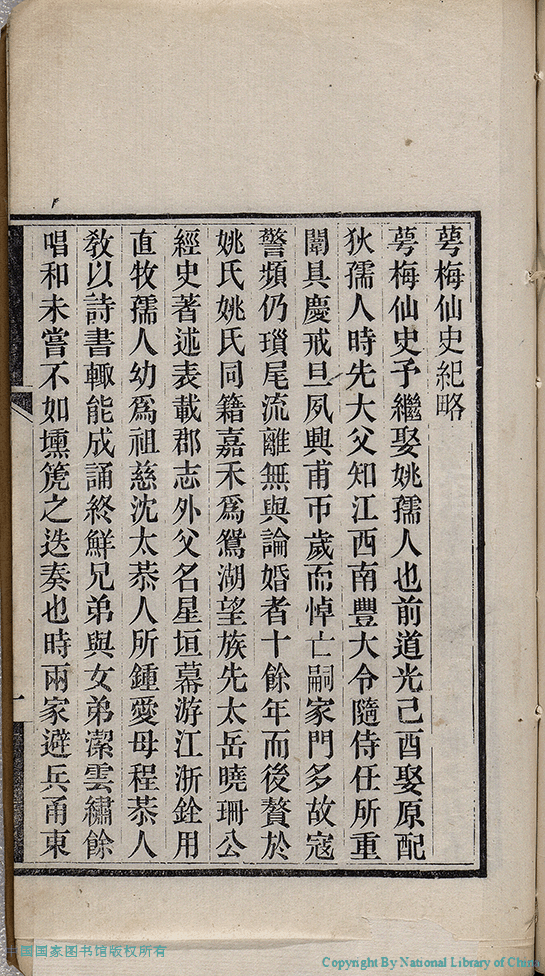 萼梅仙史紀略
萼梅仙史予繼娶姚孺人也前道光己酉娶原配
狄孺人時先大父知江西南豐大令隨侍任所重
闈具慶戒旦夙興甫帀歲而悼亡嗣家門多故寇
警頻仍瑣尾流離無與論婚者十餘年而後贅於
姚氏姚氏同籍嘉禾爲鴛湖望族先太岳曉珊公
經史著述表載郡志外父名星垣幕游江浙銓用
直牧孺人幼爲祖慈沈太恭人所鍾愛母程恭人
敎以詩書輒能成誦終鮮兄弟與女弟潔雲繡餘
唱和未嘗不如壎箎之迭奏也時兩家避兵甬東
一
中国国家图书馆版权所有
Copyright By National Library of China